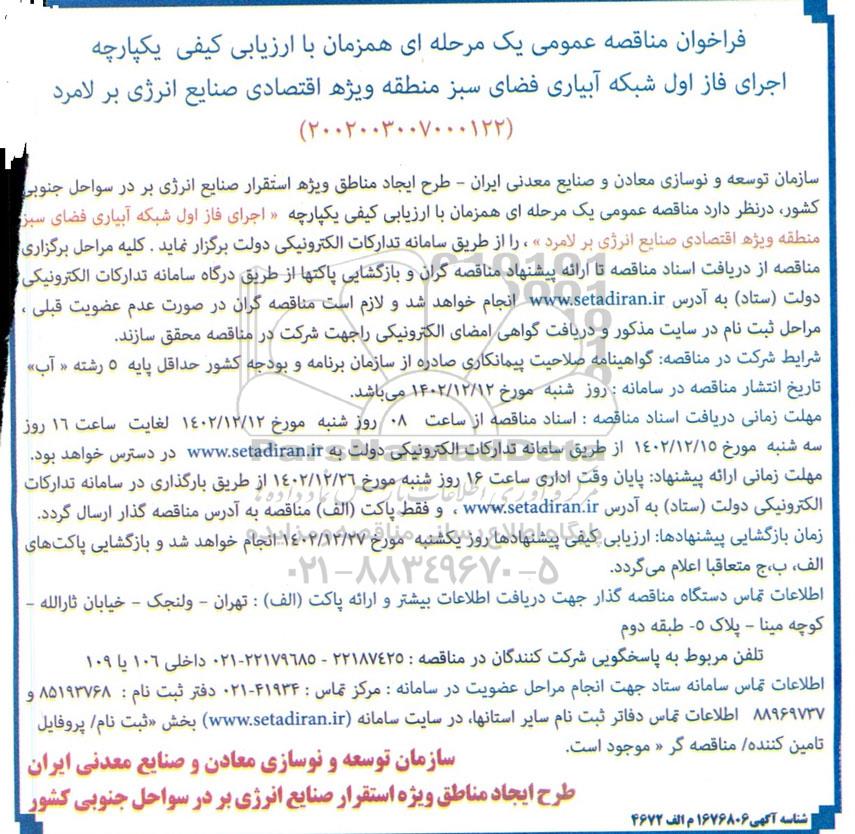 فراخوان مناقصه عمومی یک مرحله ای همزمان با ارزیابی کیفی یکپارچه
اجرای فاز اول شبکه آبیاری فضای سبز منطقه ویژه اقتصادی صنایع انرژی بر لامرد
(۲۰۰۲۰۰۳۰۰۷۰۰۰۱۲۲)
سازمان توسعه و نوسازی معادن و صنایع معدنی ایران - طرح ایجاد مناطق ویژه استقرار صنایع انرژی بر در سواحل جنوبی
کشور، درنظر دارد مناقصه عمومی یک مرحله ای همزمان با ارزیابی کیفی یکپارچه « اجرای فاز اول شبکه آبیاری فضای سبز
منطقه ویژه اقتصادی صنایع انرژی بر لامرد » ، را از طریق سامانه تدارکات الکترونیکی دولت برگزار نماید . کلیه مراحل برگزاری
مناقصه از دریافت اسناد مناقصه تا ارائه پیشنهاد مناقصه گران و بازگشایی پاکتها از طریق درگاه سامانه تدارکات الکترونیکی
دولت (ستاد) به آدرس www.setadiran.ir انجام خواهد شد و لازم است مناقصه گران در صورت عدم عضویت قبلی ،
مراحل ثبت نام در سایت مذکور و دریافت گواهی امضای الکترونیکی راجهت شرکت در مناقصه محقق سازند.
شرایط شرکت در مناقصه: گواهینامه صلاحیت پیمانکاری صادره از سازمان برنامه و بودجه کشور حداقل پایه ۵ رشته « آب»
تاریخ انتشار مناقصه در سامانه : روز شنبه مورخ ۱۴۰۲/۱۲/۱۲ می‌باشد.
مهلت زمانی دریافت اسناد مناقصه : اسناد مناقصه از ساعت ۰۸ روز شنبه مورخ ۱۴۰۲/۱۲/۱۲ لغایت ساعت ۱۶ روز
سه شنبه مورخ ۱۴۰۲/۱۲/۱۵ از طریق سامانه تدارکات الکترونیکی دولت به www.setadiran.ir در دسترس خواهد بود.
مهلت زمانی ارائه پیشنهاد: پایان وقت اداری ساعت ۱۶ روز شنبه مورخ ۱۴۰۲/۱۲/۲۶ از طریق بارگذاری در سامانه تدارکات
الکترونیکی دولت (ستاد) به آدرس www.setadiran.ir ، و فقط پاکت (الف) مناقصه به آدرس مناقصه گذار ارسال گردد.
زمان بازگشایی پیشنهادها: ارزیابی کیفی پیشنهادها روز یکشنبه مورخ ۱۴۰۲/۱۲/۲۷ انجام خواهد شد و بازگشایی پاکت‌های
الف، ب،ج متعاقبا اعلام می‌گردد.
۰۲۱-۸۸۳۴۹۶۷۰-۵
اطلاعات تماس دستگاه مناقصه گذار جهت دریافت اطلاعات بیشتر و ارائه پاکت (الف) : تهران - ولنجک - خیابان ثارالله -
کوچه مینا - پلاک ۵- طبقه دوم
تلفن مربوط به پاسخگویی شرکت کنندگان در مناقصه : ۲۲۱۸۷۴۲۵ - ۲۲۱۷۹۶۸۵-۰۲۱ داخلی ۱۰۶ یا ۱۰۹
اطلاعات تماس سامانه ستاد جهت انجام مراحل عضویت در سامانه : مرکز تماس : ۴۱۹۳۴-۰۲۱ دفتر ثبت نام : ۸۵۱۹۳۷۶۸ و
۸۸۹۶۹۷۳۷ اطلاعات تماس دفاتر ثبت نام سایر استانها، در سایت سامانه (www.setadiran.ir) بخش «ثبت نام/ پروفایل
تامین کننده/ مناقصه گر » موجود است.
سازمان توسعه و نوسازی معادن و صنایع معدنی ایران
طرح ایجاد مناطق ویژه استقرار صنایع انرژی بر در سواحل جنوبی کشور
شناسه آگهی۱۶۷۶۸۰۶ م الف ۴۶۷۲